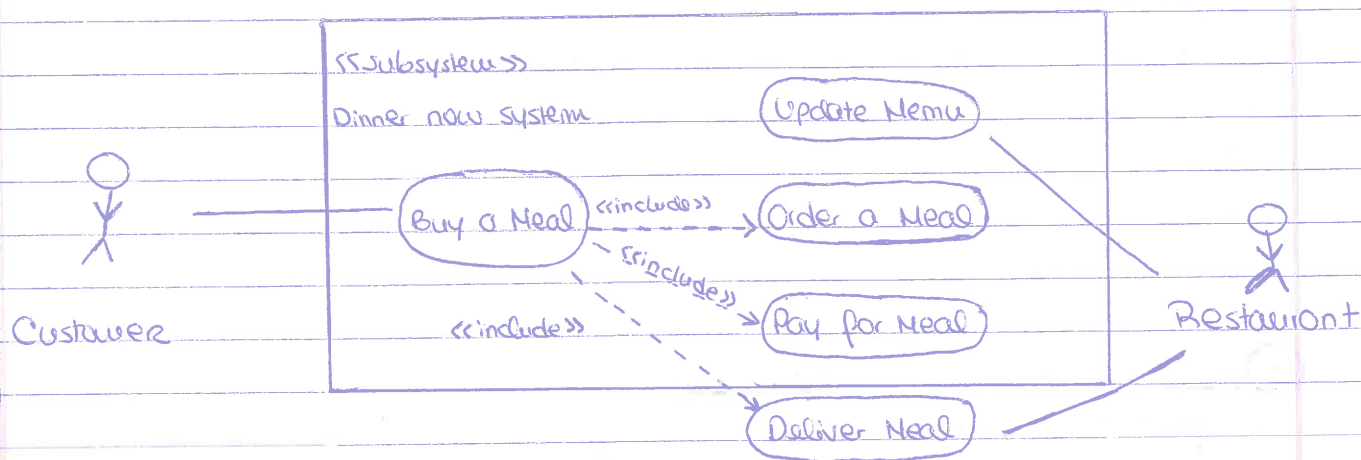 <<subsystem>>
Dinner now system
Update Menu
Buy a Meal
<<include>>
Order a Meal
<<include>>
Pay for Meal
<<include>>
Deliver Meal
Customer
Restaurant